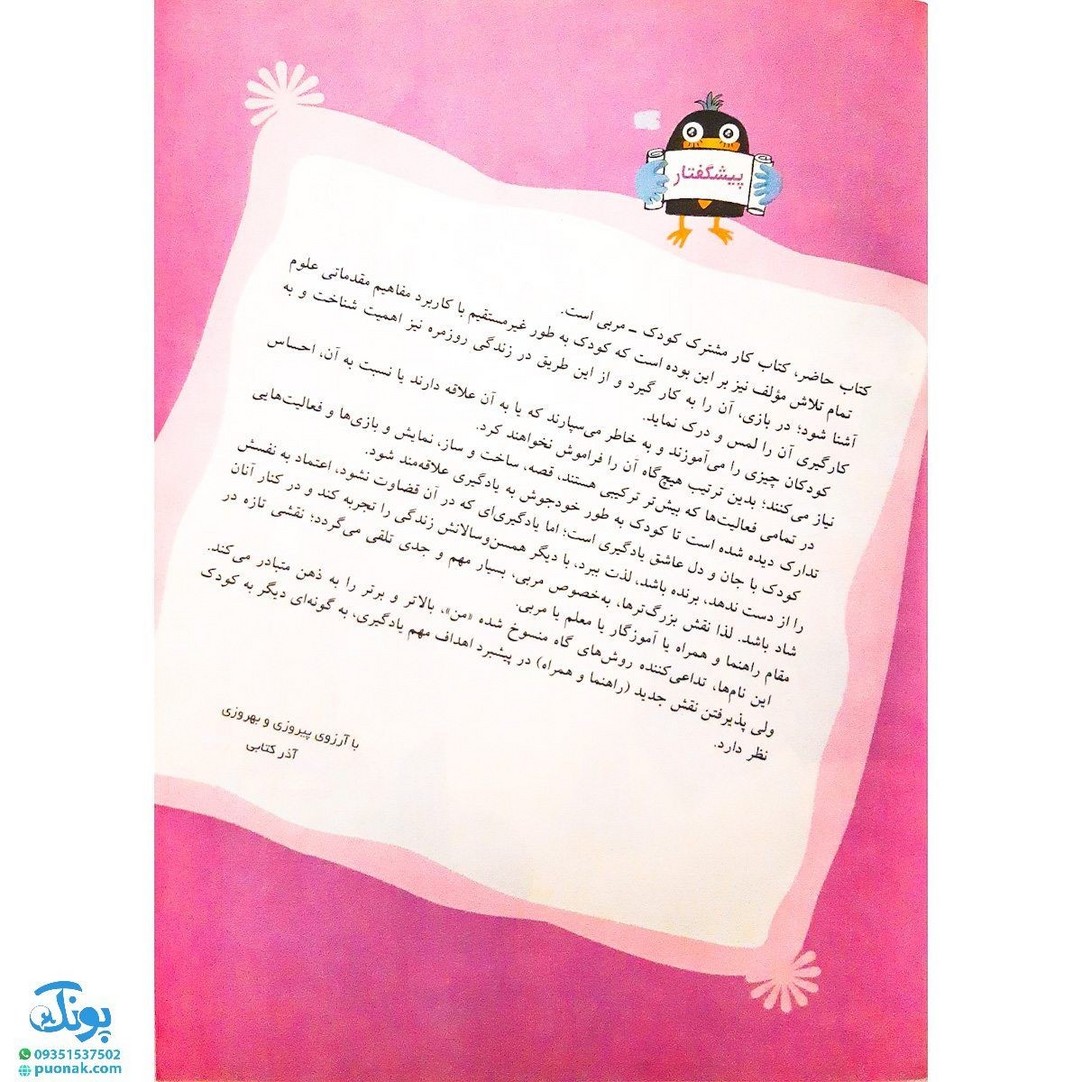 پیشگفتار
کتاب حاضر، کتاب کار مشترک کودک ـ مربی است.
تمام تلاش مؤلف نیز بر این بوده است که کودک به طور غیرمستقیم با کاربرد مفاهیم مقدماتی علوم
آشنا شود؛ در بازی، آن را به کار گیرد و از این طریق در زندگی روزمره نیز اهمیت شناخت و به
کارگیری آن را لمس و درک نماید.
کودکان چیزی را می‌آموزند و به خاطر می‌سپارند که یا به آن علاقه دارند یا نسبت به آن، احساس
نیاز می‌کنند؛ بدین ترتیب هیچ‌گاه آن را فراموش نخواهند کرد.
در تمامی فعالیت‌ها که بیش‌تر ترکیبی هستند، قصه، ساخت و ساز، نمایش و بازی‌ها و فعالیت‌هایی
تدارک دیده شده است تا کودک به طور خودجوش به یادگیری علاقه‌مند شود.
کودک با جان و دل عاشق یادگیری است؛ اما یادگیری‌ای که در آن قضاوت نشود، اعتماد به نفسش
را از دست ندهد، برنده باشد، لذت ببرد، با دیگر همسن‌وسالانش زندگی را تجربه کند و در کنار آنان
شاد باشد. لذا نقش بزرگ‌ترها، به‌خصوص مربی، بسیار مهم و جدی تلقی می‌گردد؛ نقشی تازه در
مقام راهنما و همراه یا آموزگار یا معلم یا مربی.
این نام‌ها، تداعی‌کننده روش‌های گاه منسوخ شده «من»، بالاتر و برتر را به ذهن متبادر می‌کند.
ولی پذیرفتن نقش جدید (راهنما و همراه) در پیشبرد اهداف مهم یادگیری، به گونه‌ای دیگر به کودک
نظر دارد.
با آرزوی پیروزی و بهروزی
آذر کتابی
پونک
09351537502
puonak.com